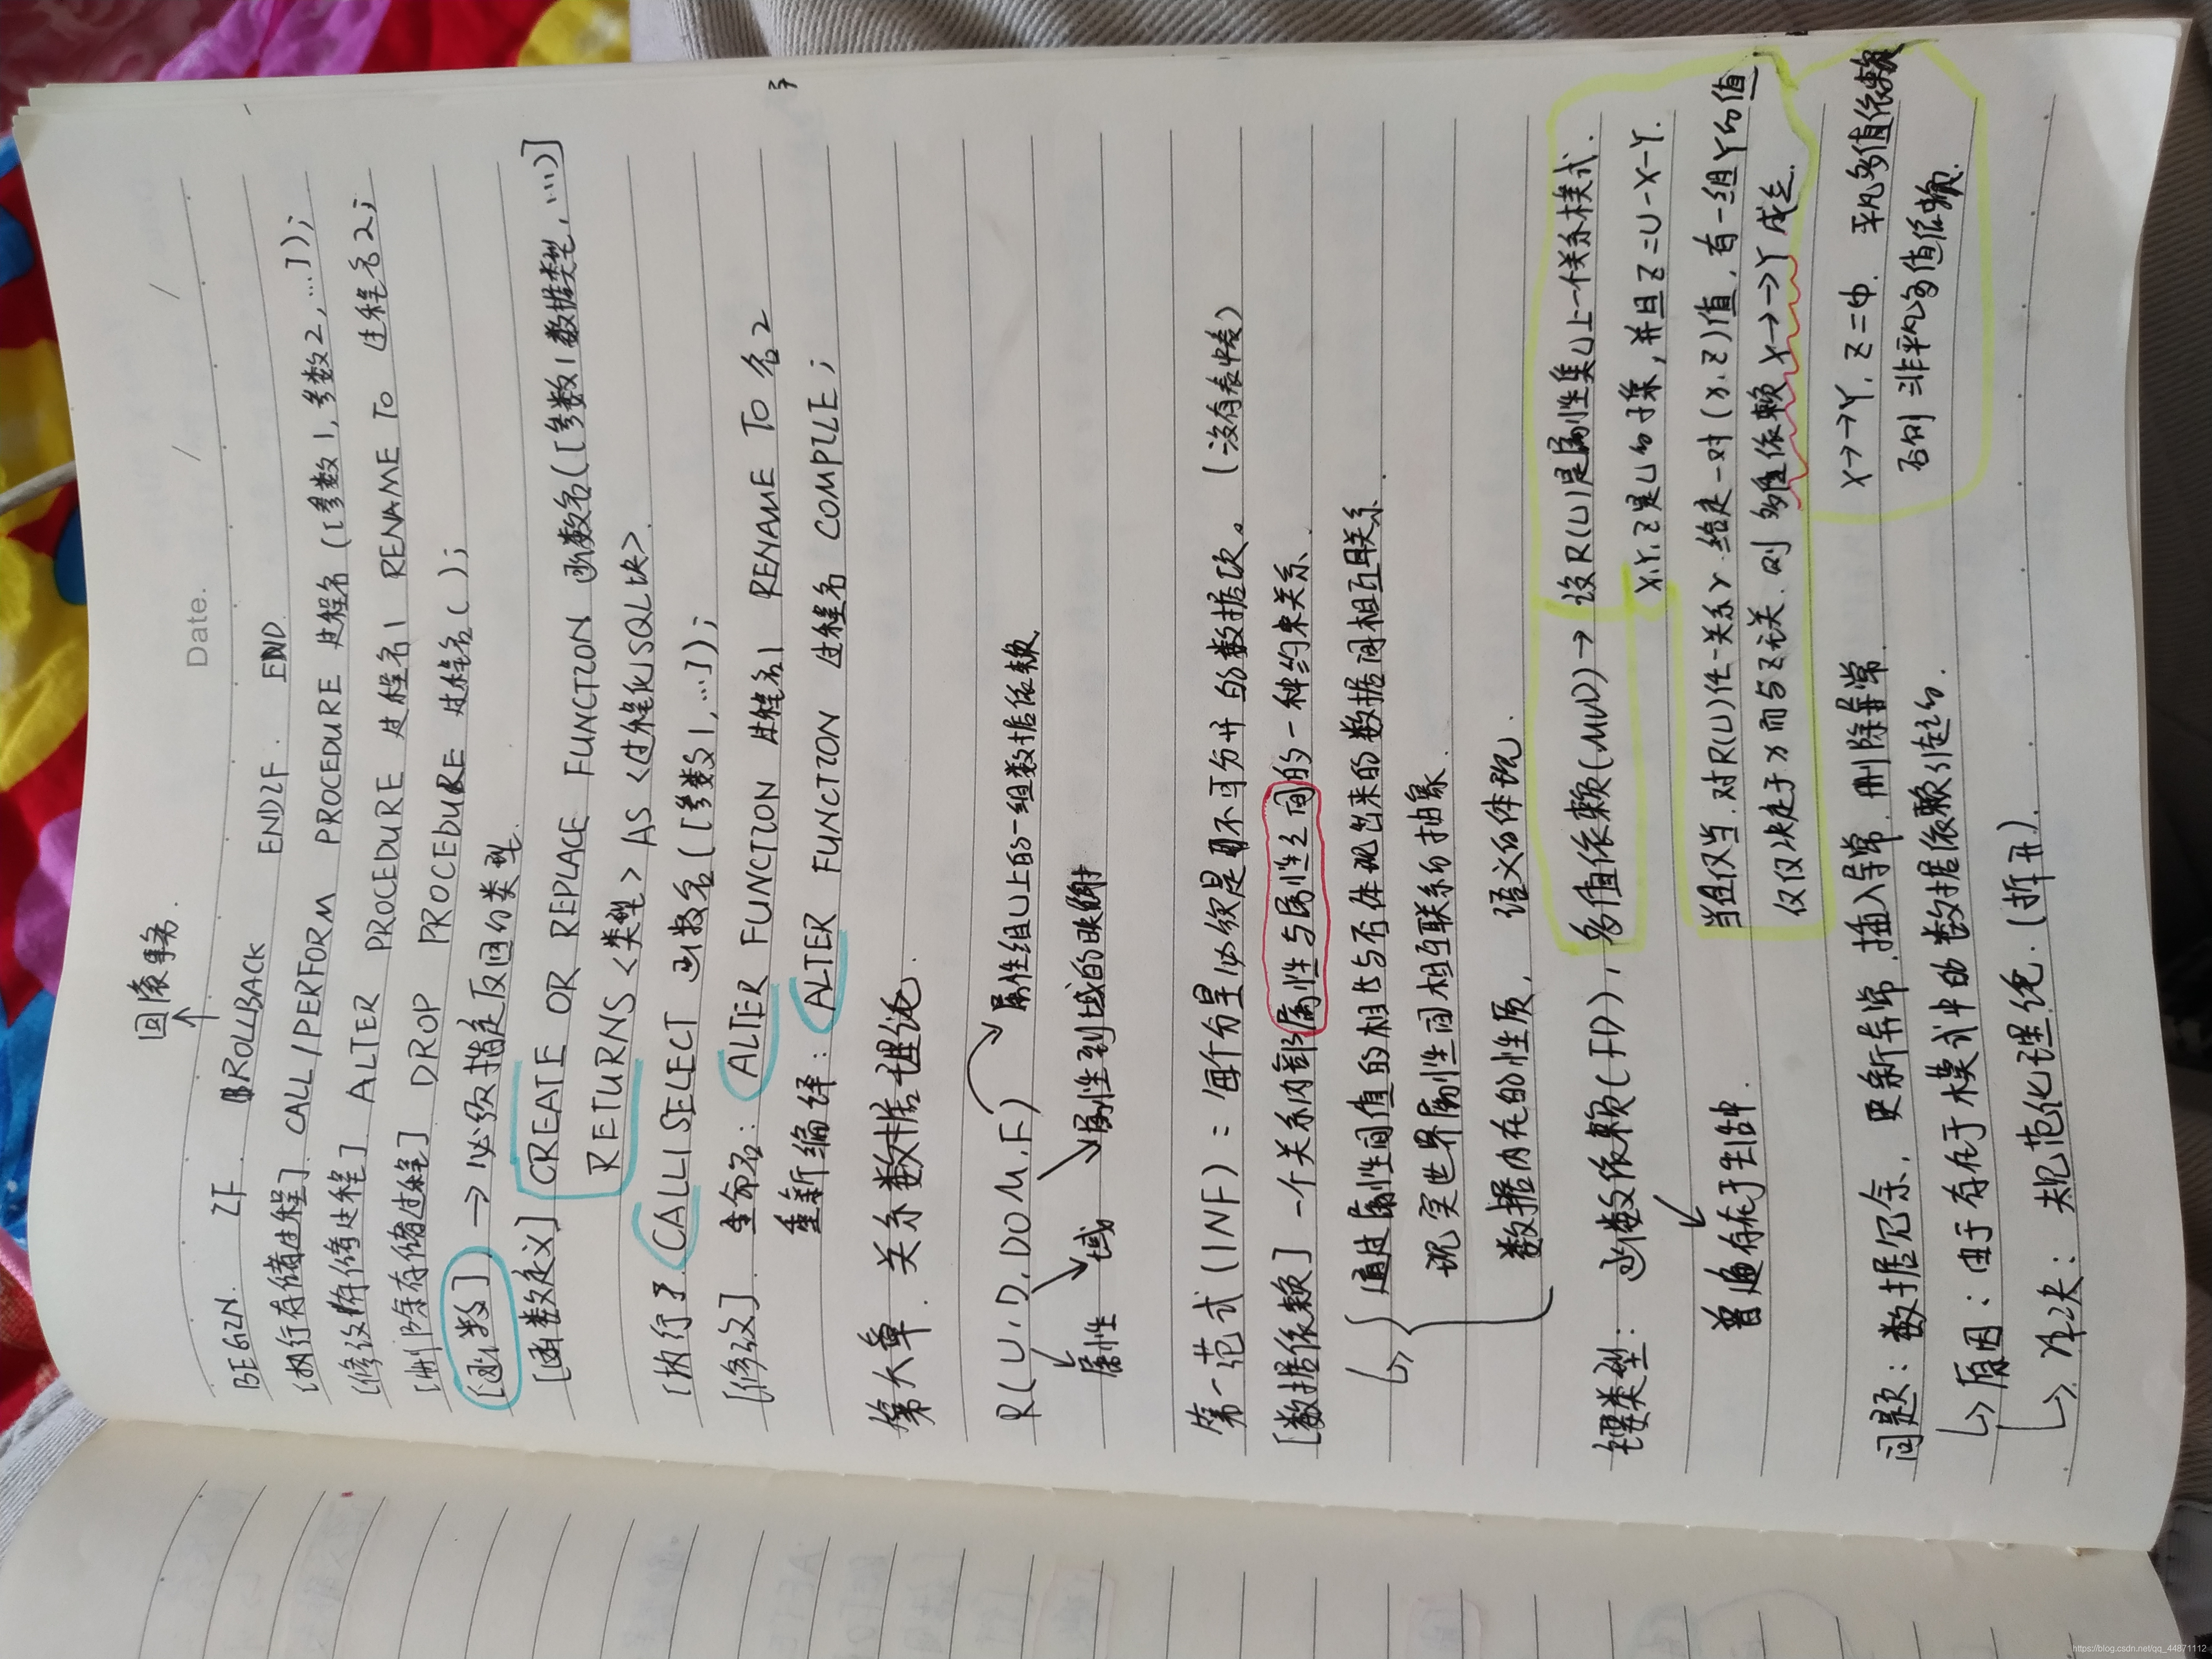 Date.
回滚事务.
BEGIN. IF. ROLLBACK ENDIF. END.
[执行存储过程]. CALL/PERFORM PROCEDURE 过程名([参数1,参数2,...]);
[修改存储过程] ALTER PROCEDURE 过程名1 RENAME TO 过程名2;
[删除存储过程] DROP PROCEDURE 过程名();
[函数] → 必须指定反回的类型.
[函数定义] CREATE OR REPLACE FUNCTION 函数名([参数1数据类型,...)]
RETURNS <类型> AS <过程化SQL块>.
[执行]. CALL|SELECT 函数名([参数1,...]);
[修改]. 重命名: ALTER FUNCTION 过程名1 RENAME TO 名2
重新编译: ALTER FUNCTION 过程名 COMPILE;
第六章. 关系数据理论.
R(U.D.DOM.F) 属性组U上的一组数据依赖
属性 域 属性到域的映射
第一范式(1NF): 每个分量必须是不可分开的数据项。(没有表中表)
[数据依赖] 一个关系内部属性与属性之间的一种约束关系.
通过属性间值的相等与否体现出来的数据间相互联系.
现实世界属性间相互联系的抽象.
数据内在的性质, 语义的体现.
类型: 函数依赖(FD), 多值依赖(MVD) → 设R(U)是属性集U上一个关系模式.
X.Y.Z是U的子集,并且Z=U-X-Y.
普遍存在于生活中. 当且仅当.对R(U)任一关系r.给定一对(x.z)值,有一组Y的值,
仅仅决定于x而与z无关.则 多值依赖 X→→Y 成立.
X→→Y. Z=Φ. 平凡多值依赖
否则 非平凡多值依赖.
问题: 数据冗余. 更新异常.插入异常.删除异常.
原因: 由于存在于模式中的数据依赖引起的.
解决: 规范化理论.(拆开).
https://blog.csdn.net/qq_44871112